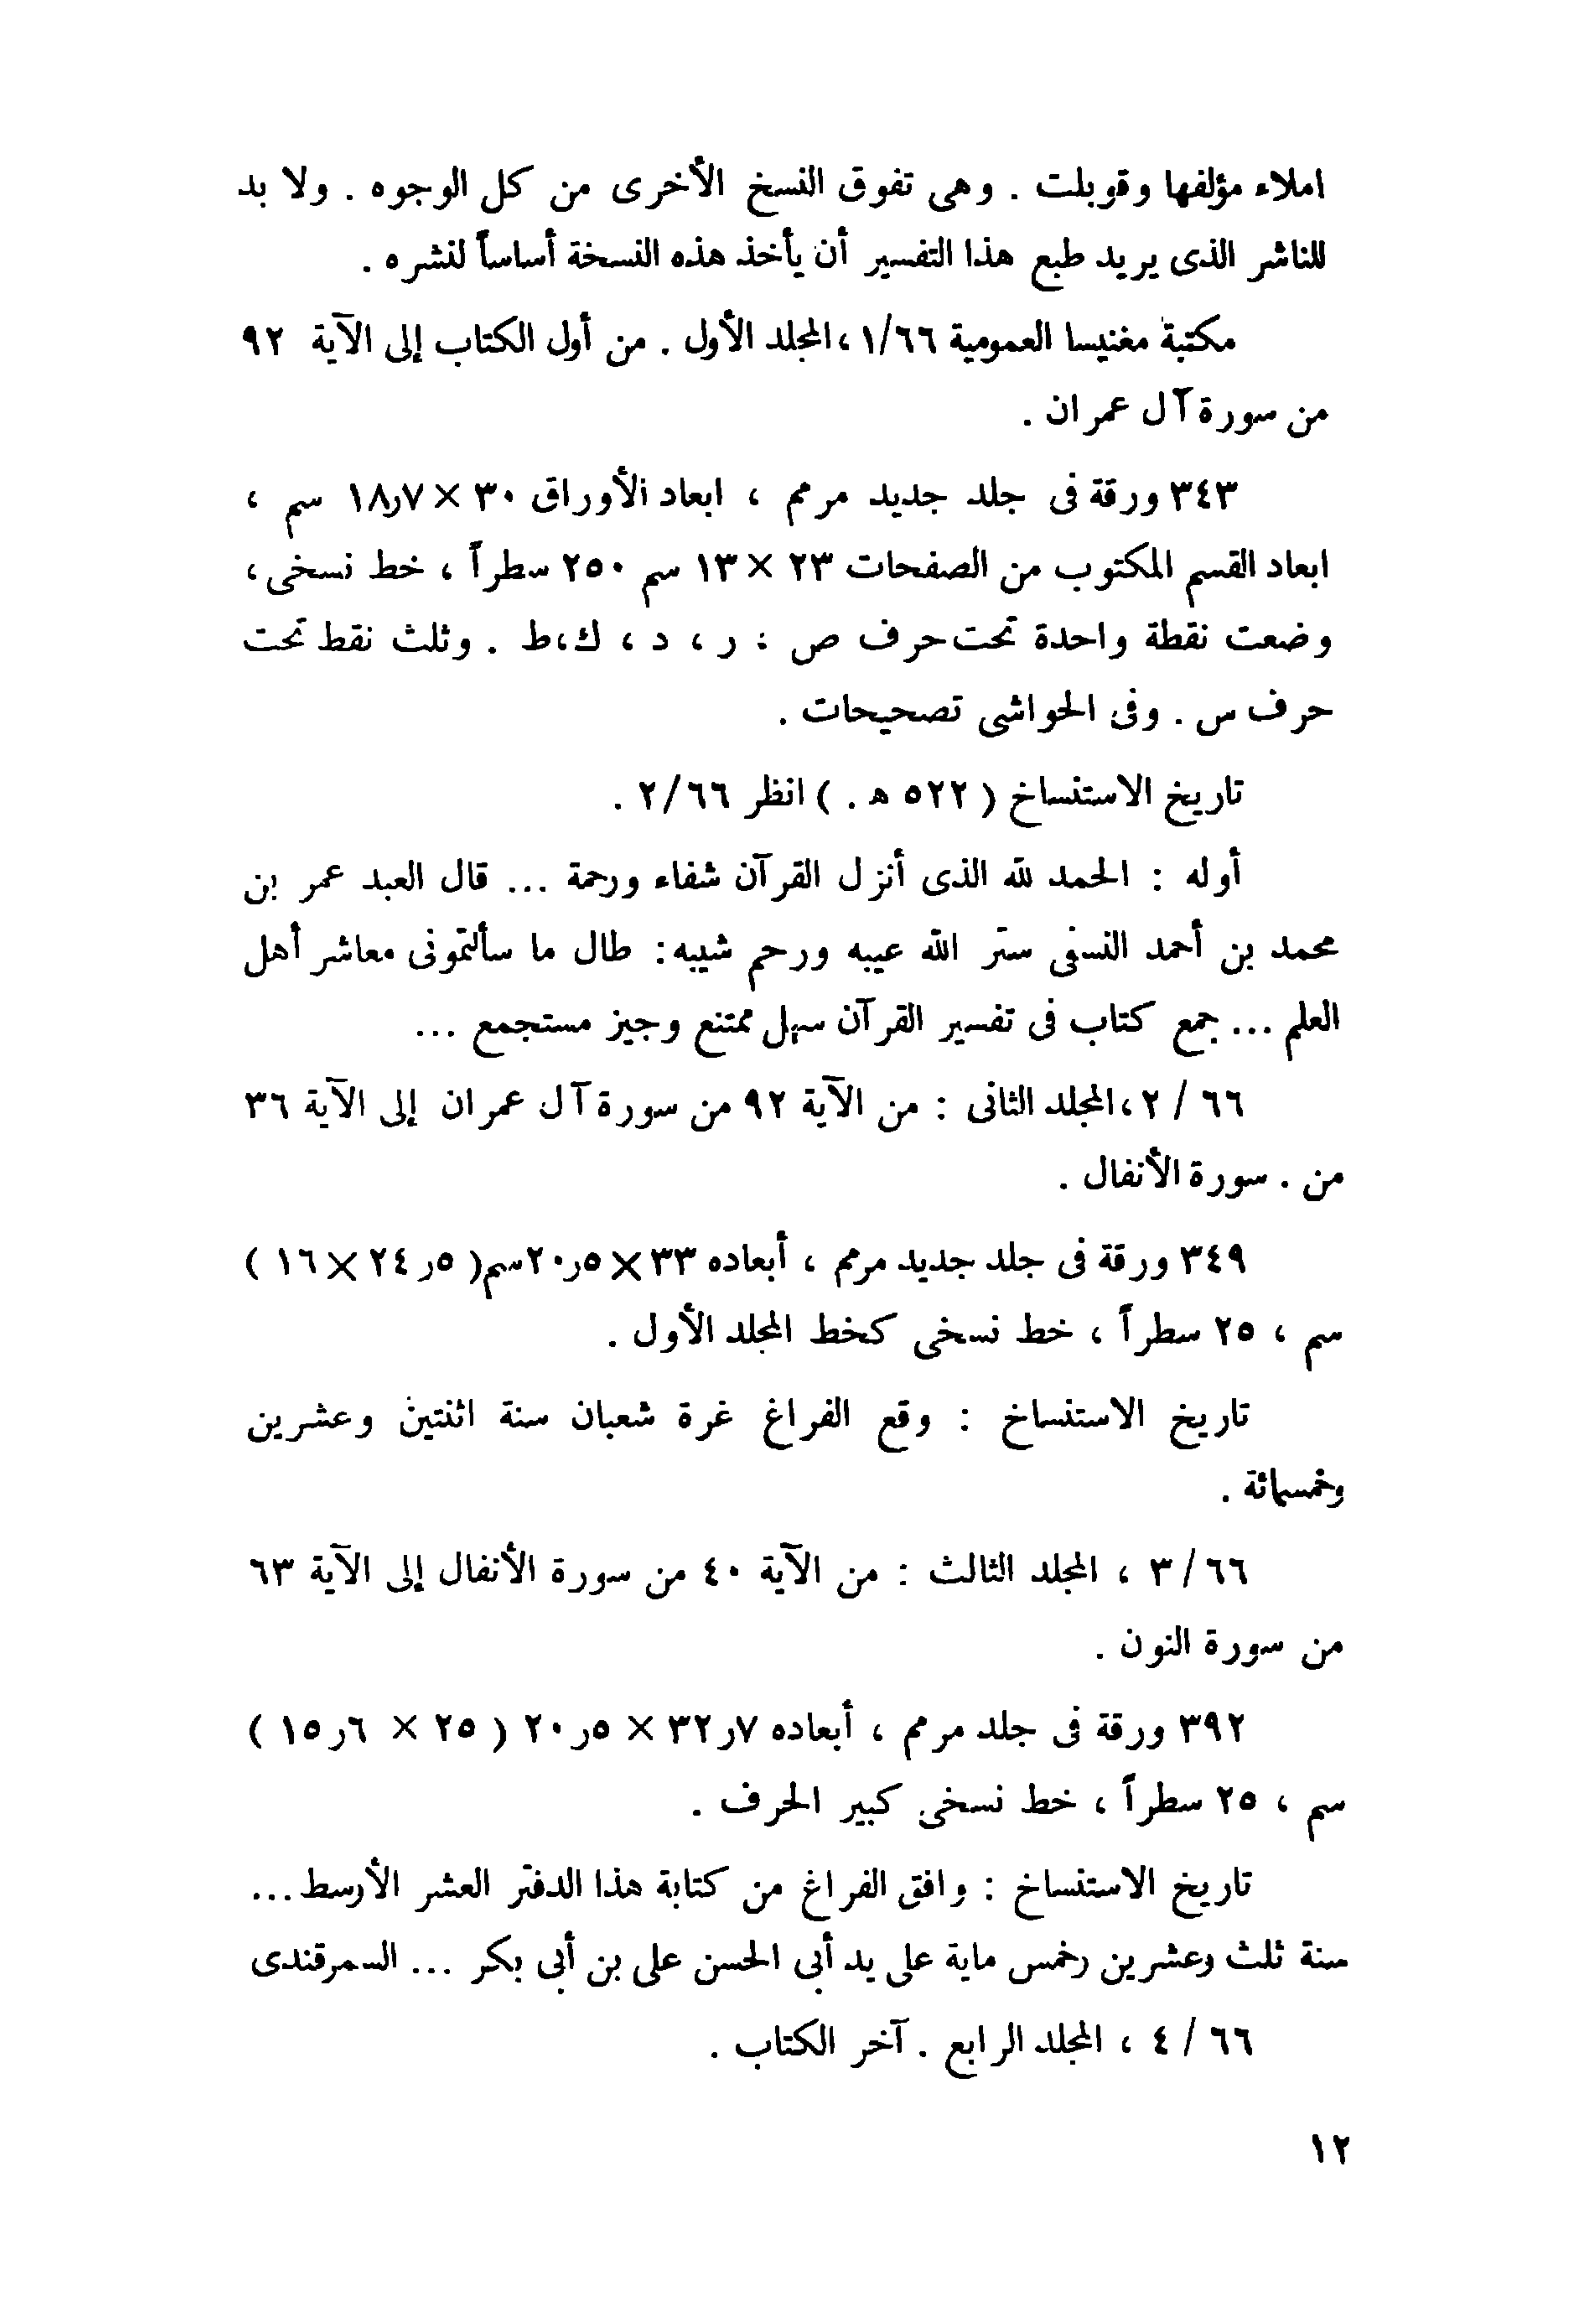 املاء مؤلفها وقوبلت . وهى تفوق النسخ الأخرى من كل الوجوه . ولا بد
للناشر الذى يريد طبع هذا التفسير أن يأخذ هذه النسخة أساساً لنشره .
مكتبة مغنيسا العمومية ١/٦٦ ، المجلد الأول . من أول الكتاب إلى الآية ٩٢
من سورة آل عمران .
٣٤٣ ورقة فى جلد جديد مرمم ، ابعاد الأوراق ٣٠ × ١٨٫٧ سم ،
ابعاد القسم المكتوب من الصفحات ٢٣ × ١٣ سم ٢٥٠ سطراً ، خط نسخى ،
وضعت نقطة واحدة تحت حرف ص ؛ ر ، د ، ك ، ط . وثلث نقط تحت
حرف س . وفى الحواشى تصحيحات .
تاريخ الاستنساخ ( ٥٢٢ ه . ) انظر ٢/٦٦ .
أوله : الحمد لله الذى أنزل القرآن شفاء ورحمة ... قال العبد عمر بن
محمد بن أحمد النسفى ستر الله عيبه ورحم شيبه : طال ما سألتمونى معاشر أهل
العلم ... جمع كتاب فى تفسير القرآن سهل ممتنع وجيز مستجمع ...
٢ / ٦٦ ، المجلد الثانى : من الآية ٩٢ من سورة آل عمران إلى الآية ٣٦
من . سورة الأنفال .
٣٤٩ ورقة فى جلد جديد مرمم ، أبعاده ٣٣ × ٥ر٢٠ سم ( ٥ر٢٤ × ١٦ )
سم ، ٢٥ سطراً ، خط نسخى كخط المجلد الأول .
تاريخ الاستنساخ : وقع الفراغ غرة شعبان سنة اثنتين وعشرين
وخمسمائة .
٣/٦٦ ، المجلد الثالث : من الآية ٤٠ من سورة الأنفال إلى الآية ٦٣
من سورة النون .
٣٩٢ ورقة فى جلد مرمم ، أبعاده ٧ر٣٢ × ٥ر٢٠ ( ٢٥ × ٦ر١٥ )
سم ، ٢٥ سطراً ، خط نسخى كبير الحرف .
تاريخ الاستنساخ : وافق الفراغ من كتابة هذا الدفتر العشر الأرسط ...
سنة ثلث وعشرين رخمس ماية على يد أبى الحسن على بن أبى بكر ... السمرقندى
٤ / ٦٦ ، المجلد الرابع . آخر الكتاب .
١٢